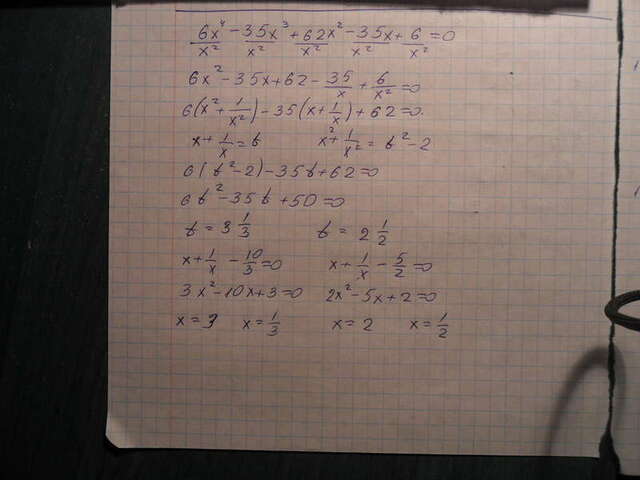 6x⁴/x² - 35x³/x² + 62x²/x² - 35x/x² + 6/x² = 0
6x² - 35x + 62 - 35/x + 6/x² = 0
6(x² + 1/x²) - 35(x + 1/x) + 62 = 0.
x + 1/x = t x² + 1/x² = t² - 2
6(t² - 2) - 35t + 62 = 0
6t² - 35t + 50 = 0
t = 3 1/3 t = 2 1/2
x + 1/x - 10/3 = 0 x + 1/x - 5/2 = 0
3x² - 10x + 3 = 0 2x² - 5x + 2 = 0
x = 3 x = 1/3 x = 2 x = 1/2